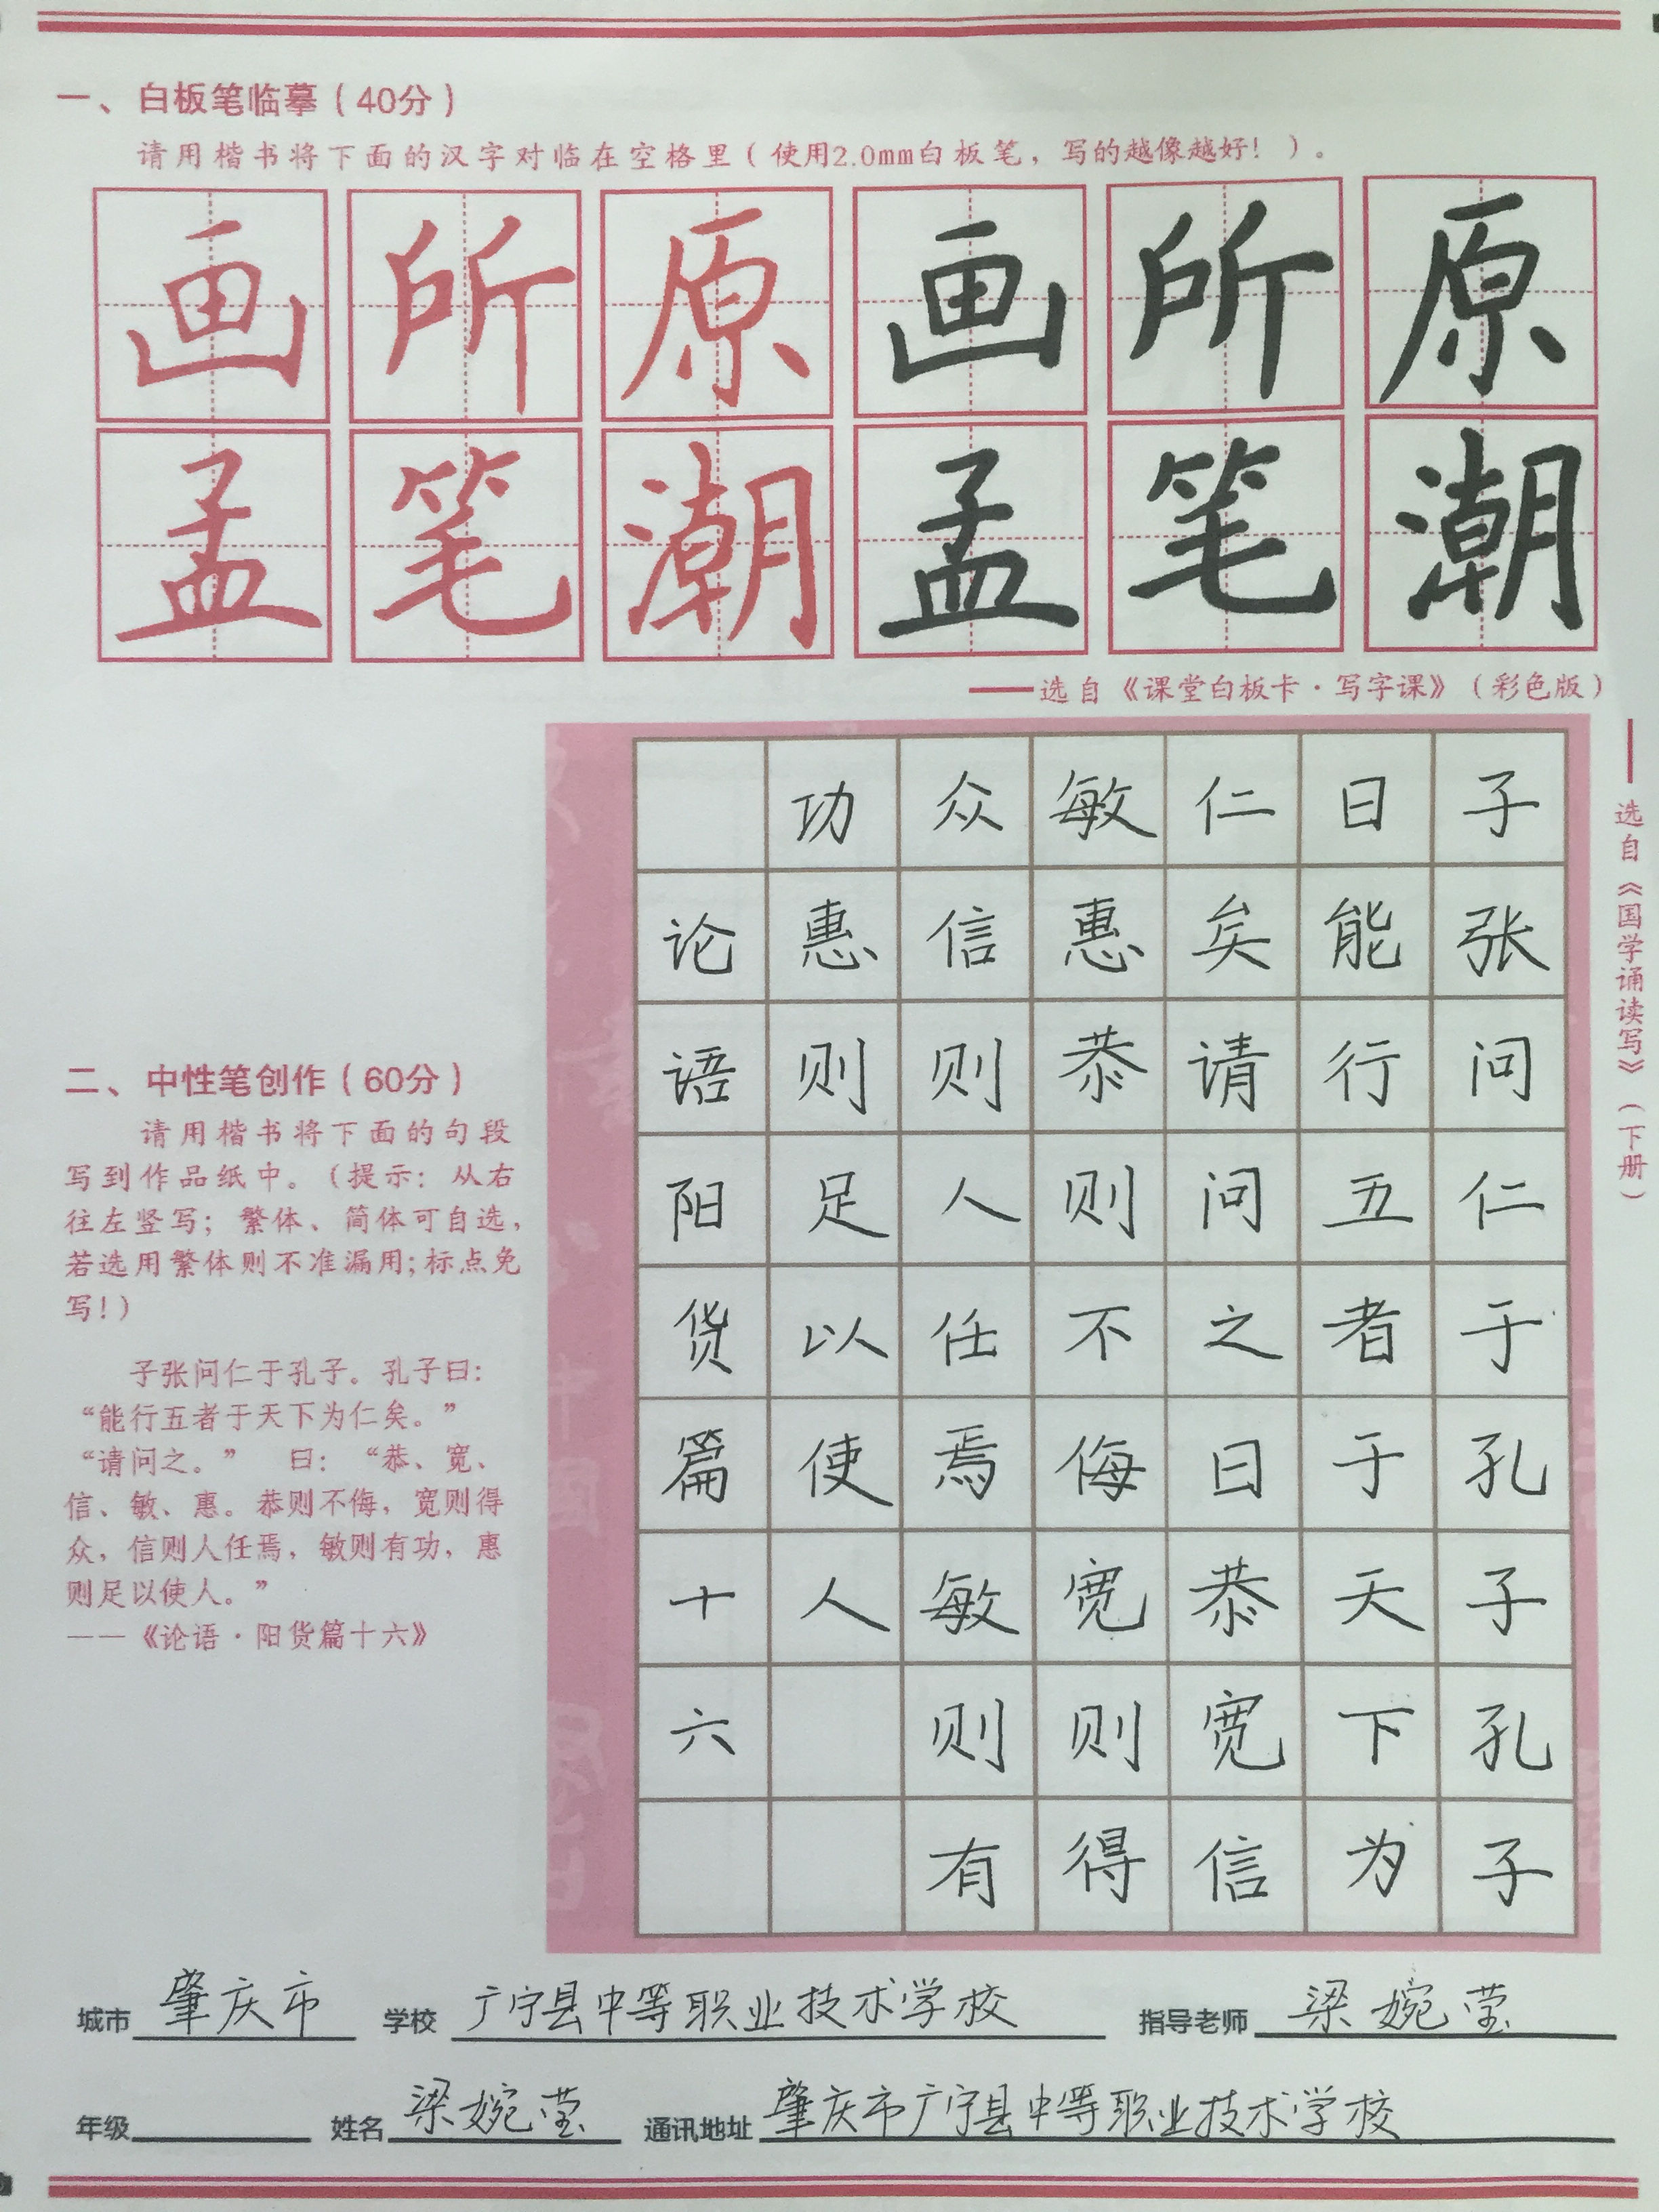 一、白板笔临摹（40分）
请用楷书将下面的汉字对临在空格里（使用2.0mm白板笔，写的越像越好！）。
画所原画所原
孟笔潮孟笔潮
——选自《课堂白板卡·写字课》（彩色版）
——选自《国学诵读写》（下册）
子张问仁于孔子孔子
曰能行五者于天下为
仁矣请问之曰恭宽信
敏惠恭则不侮宽则得
众信则人任焉敏则有
功惠则足以使人
论语阳货篇十六
二、中性笔创作（60分）
请用楷书将下面的句段
写到作品纸中。（提示：从右
往左竖写；繁体、简体可自选，
若选用繁体则不准漏用；标点免
写！）
子张问仁于孔子。孔子曰：
“能行五者于天下为仁矣。”
“请问之。” 曰：“恭、宽、
信、敏、惠。恭则不侮，宽则得
众，信则人任焉，敏则有功，惠
则足以使人。”
——《论语·阳货篇十六》
城市 肇庆市 学校 广宁县中等职业技术学校 指导老师 梁婉莹
年级 姓名 梁婉莹 通讯地址 肇庆市广宁县中等职业技术学校